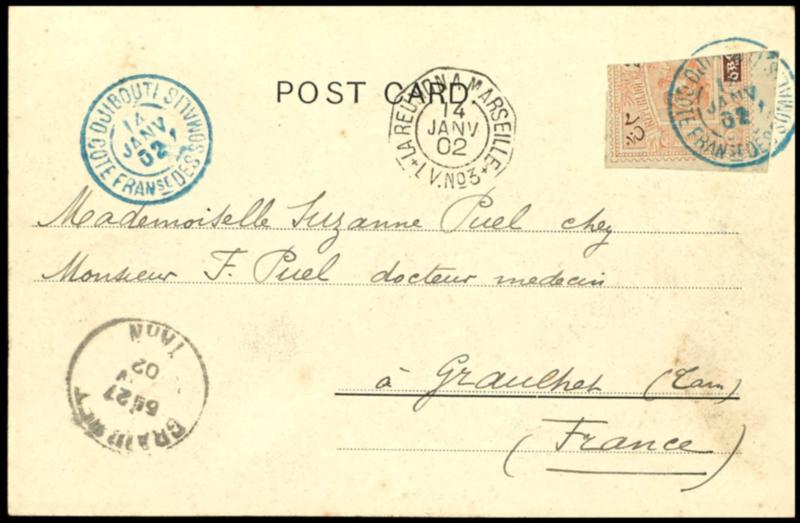 POST CARD
DJIBOUTI
14
JANV
02
COTE FRANSE DES SOMALIS
LA REUNION A MARSEILLE
14
JANV
02
L.V.No3
DJIBOUTI
JANV
02
COTE FRANSE DES SOMALIS
Mademoiselle Suzanne Puel chez
Monsieur F. Puel docteur medecin
à Graulhet (Tarn)
(France)
GRAULHET
27
02
TARN